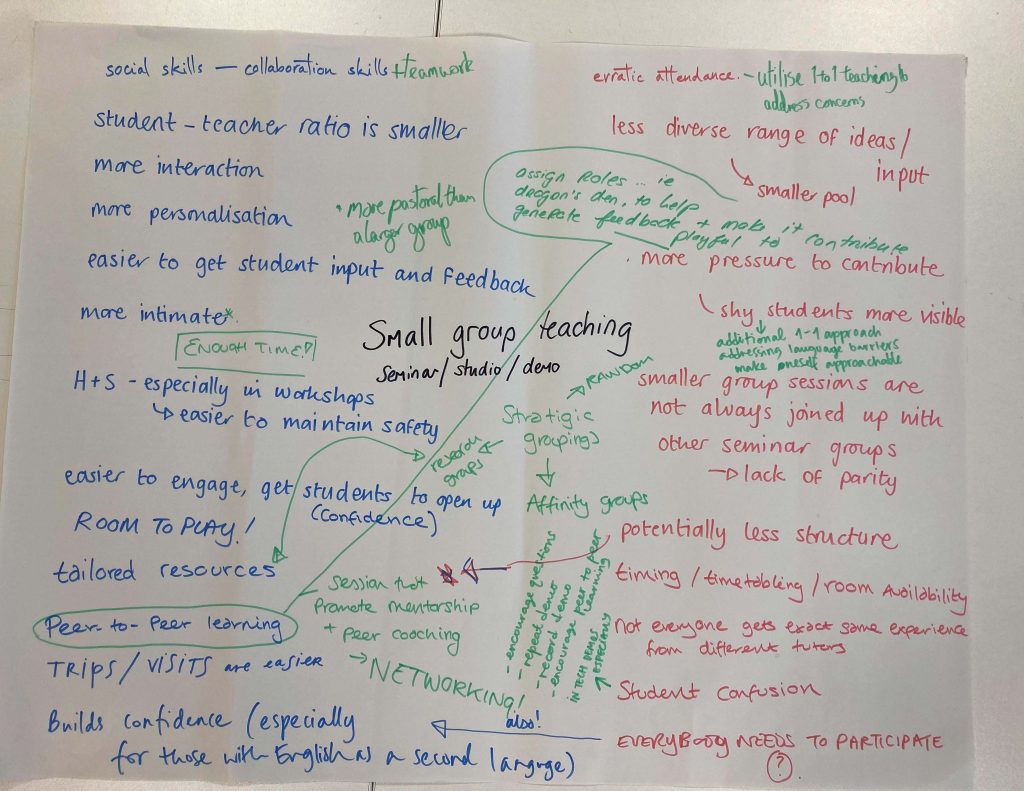 social skills — collaboration skills + teamwork
student - teacher ratio is smaller
more interaction
more personalisation
* more pastoral than
a larger group
easier to get student input and feedback
more intimate*.
ENOUGH TIME?
H+S - especially in workshops
↳ easier to maintain safety
easier to engage, get students to open up
(confidence)
ROOM TO PLAY!
tailored resources
Peer-to-Peer learning
TRIPS / VISITS are easier
Builds confidence (especially
for those with English as a second languge)
Small group teaching
seminar/studio/demo
Stratigic
groupings
→ RANDOM
research
groups
Affinity groups
Session that
Promote mentorship
+ Peer coaching
→ NETWORKING!
- encourage questions
- repeat demo
- record demo
- encourage peer to peer
learning
IN TECH DEMOS
ESPECIALLY
erratic attendance. - utilise 1 to 1 teaching to
address concerns
less diverse range of ideas/
input
smaller pool
assign roles... ie
dragon's den, to help
generate feedback + make it
playful to contribute
. more pressure to contribute
shy students more visible
additional 1-1 approach
addressing language barriers
make oneself approachable
smaller group sessions are
not always joined up with
other seminar groups
→ lack of parity
potentially less structure
timing / timetabling / room availability
not everyone gets exact same experience
from different tutors
Student confusion
also!
EVERYBODY NEEDS TO PARTICIPATE
?